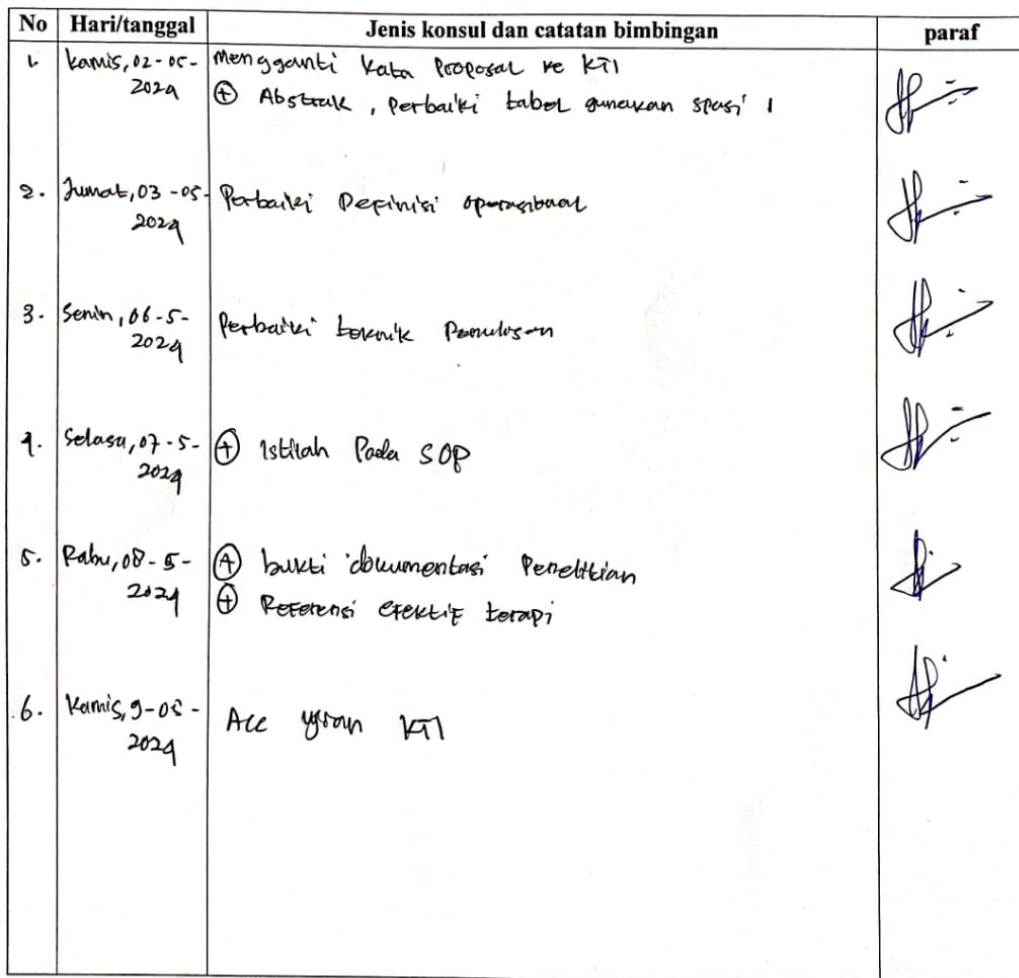 No Hari/tanggal Jenis konsul dan catatan bimbingan paraf
1. Kamis, 02-05- Mengganti Kata Proposal ke KTI
2024 + Abstrak, Perbaiki tabel gunakan spasi 1
2. Jumat, 03-05- Perbaiki Definisi operasional
2024
3. Senin, 06-5- Perbaiki teknik Penulisan
2024
4. Selasa, 07-5- + Istilah Pada SOP
2024
5. Rabu, 08-5- + bukti dokumentasi Penelitian
2024 + Referensi efektif terapi
6. Kamis, 9-05- Acc ujian KTI
2024